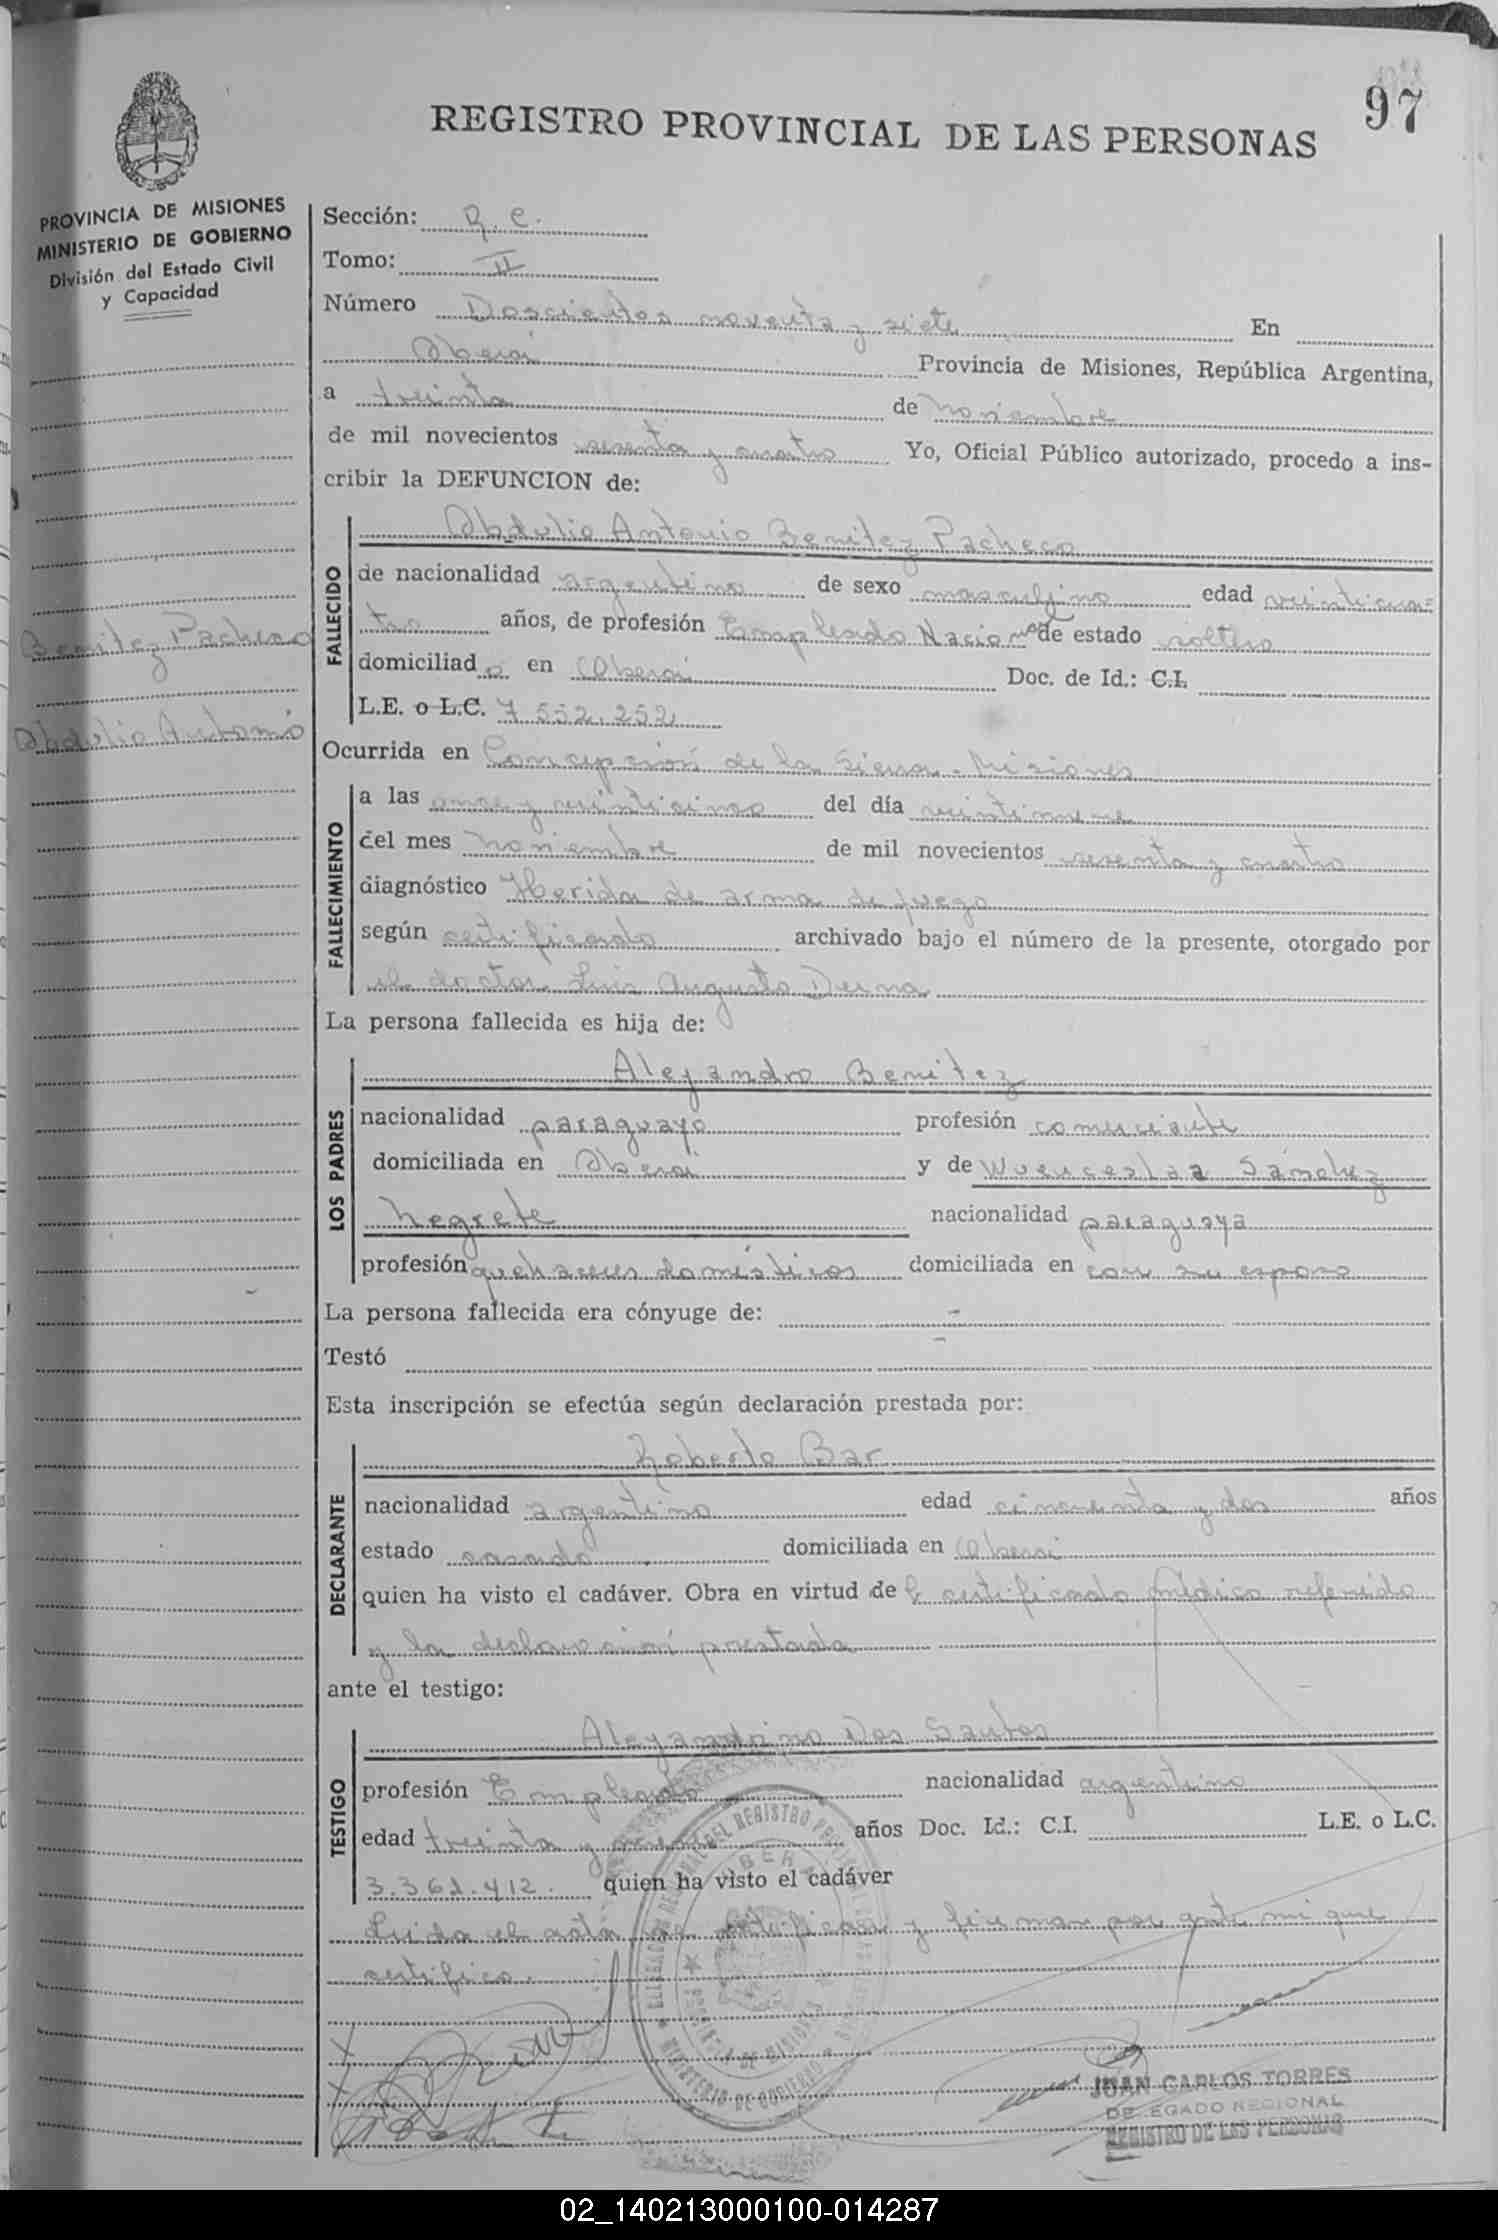 97
REGISTRO PROVINCIAL DE LAS PERSONAS
PROVINCIA DE MISIONES
MINISTERIO DE GOBIERNO
División del Estado Civil
y Capacidad
Benitez Pacheco
Obdulio Antonio
Sección: R. C.
Tomo: II
Número Doscientos noventa y siete En
Oberá Provincia de Misiones, República Argentina,
a treinta de noviembre
de mil novecientos sesenta y cuatro Yo, Oficial Público autorizado, procedo a ins-
cribir la DEFUNCION de:
FALLECIDO
Obdulio Antonio Benitez Pacheco
de nacionalidad argentino de sexo masculino edad veinticua=
tro años, de profesión Empleado Nacional de estado soltero
domiciliado en Oberá Doc. de Id.: C.I.
L.E. o L.C. 7.552.252
Ocurrida en Concepción de la Sierra - Misiones
FALLECIMIENTO
a las once y veinticinco del día veintinueve
del mes noviembre de mil novecientos sesenta y cuatro
diagnóstico Herida de arma de fuego
según certificado archivado bajo el número de la presente, otorgado por
el doctor Luis Augusto Derna
La persona fallecida es hija de:
LOS PADRES
Alejandro Benitez
nacionalidad paraguayo profesión comerciante
domiciliada en Oberá y de Wuenceslaa Sánchez
Negrete nacionalidad paraguaya
profesión quehaceres domésticos domiciliada en con su esposo
La persona fallecida era cónyuge de: -
Testó
Esta inscripción se efectúa según declaración prestada por:
DECLARANTE
Roberto Bar
nacionalidad argentino edad cincuenta y dos años
estado casado domiciliada en Oberá
quien ha visto el cadáver. Obra en virtud de l certificado médico referido
y la declaración prestada
ante el testigo:
TESTIGO
Alejandrino Dos Santos
profesión Empleado nacionalidad argentino
edad treinta y años Doc. Id.: C.I. L.E. o L.C.
3.361.412. quien ha visto el cadáver
Leida el acta la ratifican y firman por ante mi que
certifico.
JUAN CARLOS TORRES
DELEGADO REGIONAL
REGISTRO DE LAS PERSONAS
02_140213000100-014287